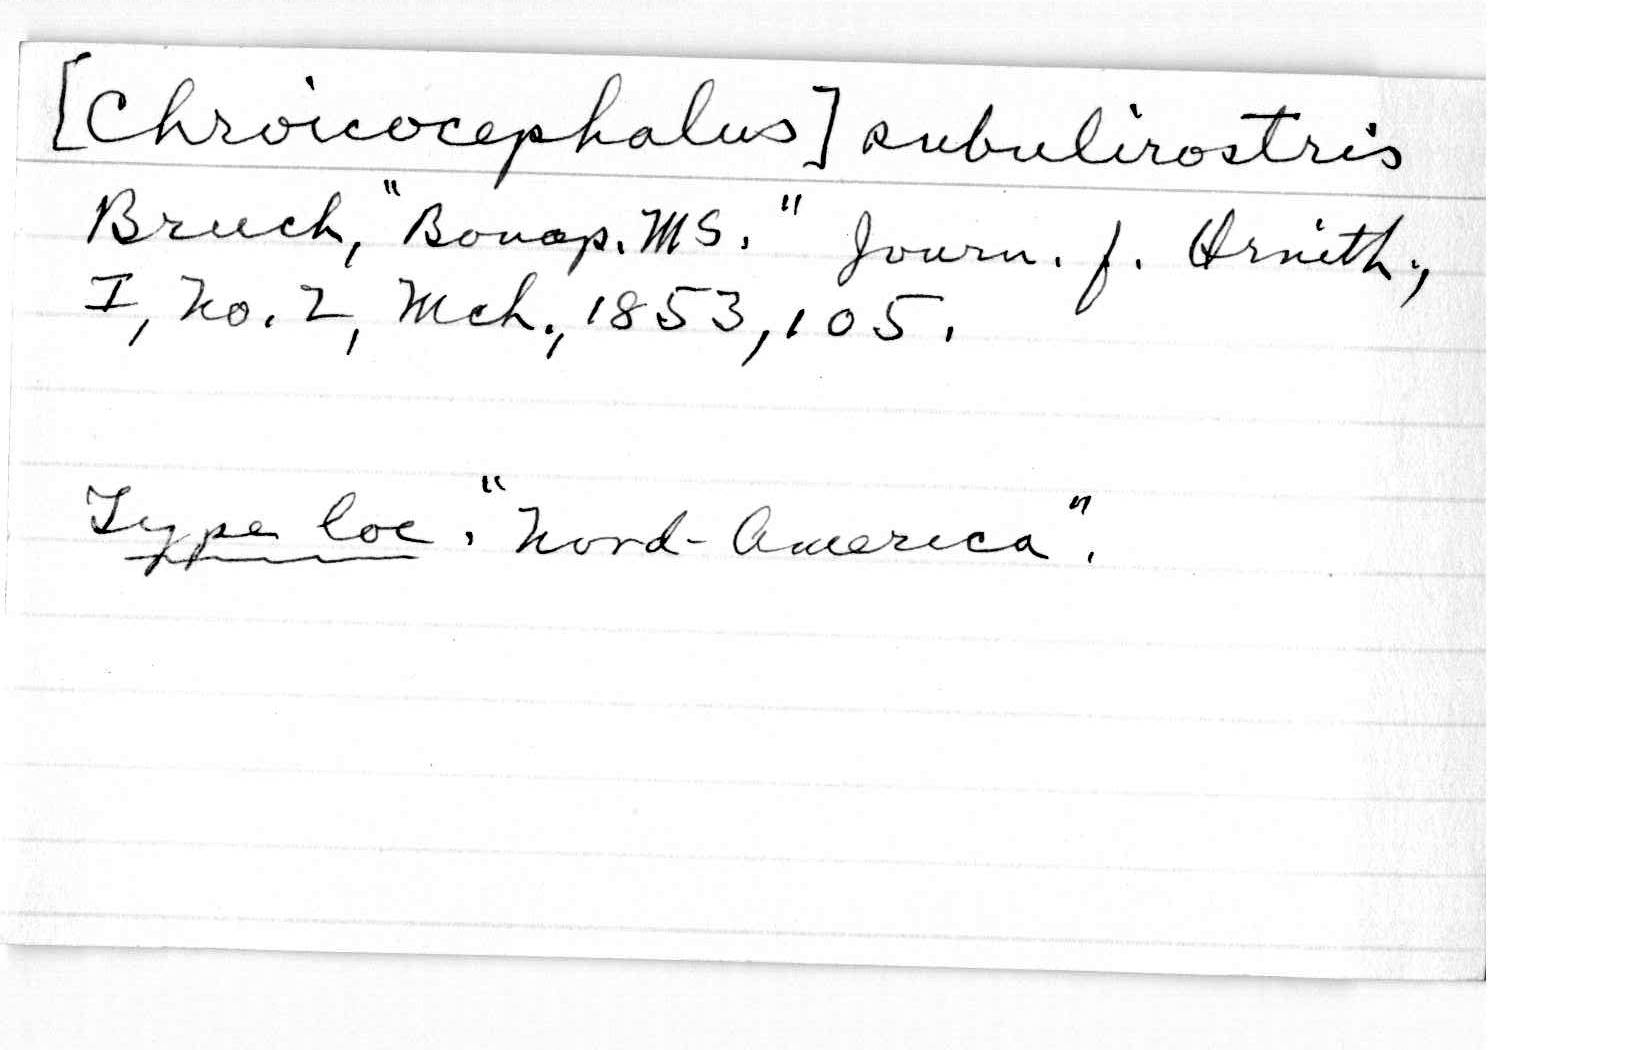 [Chroicocephalus] subulirostris
Bruch, "Bonap. MS." Journ. f. Ornith.,
I, No. 2, Mch., 1853, 105.
Type loc. "Nord-America".